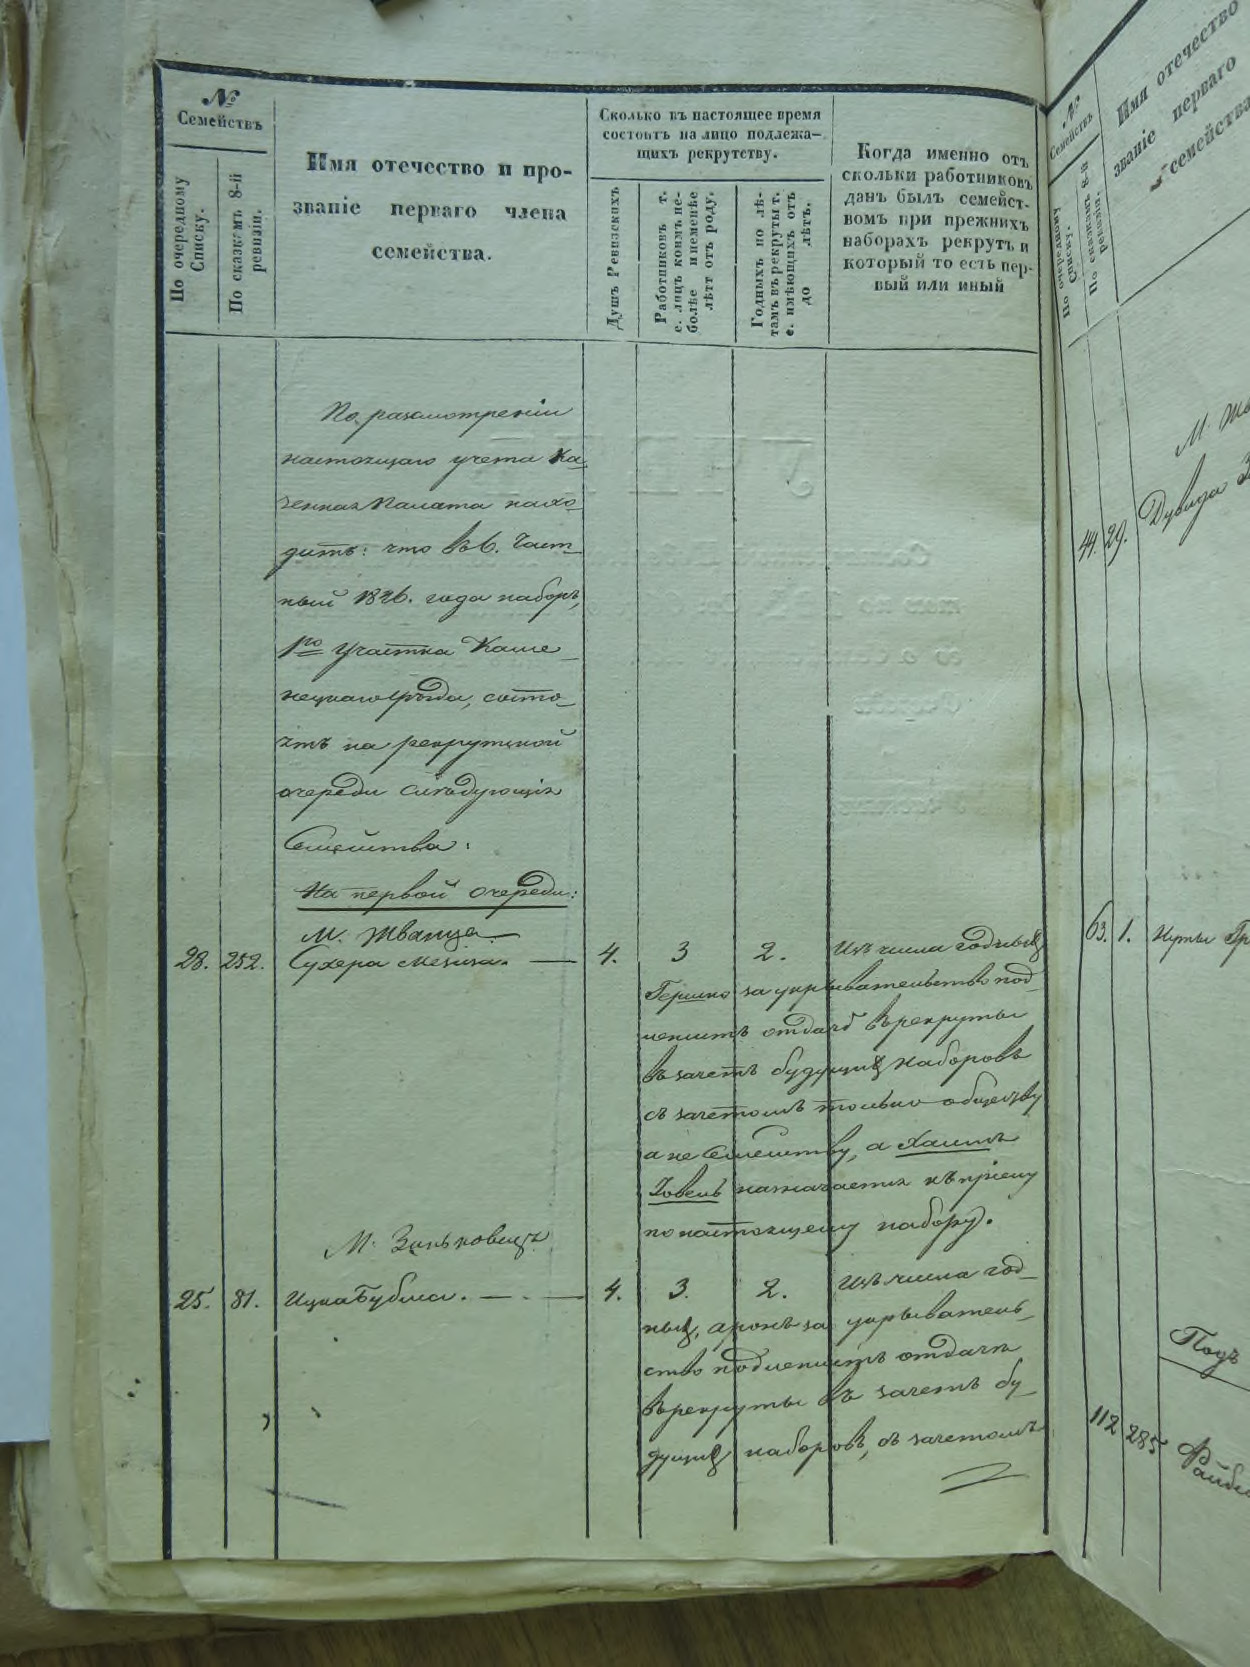 №
Семействъ
По очередному
Списку.
По сказкамъ 8-й
ревизіи.
Имя отечество и про-
званіе перваго члена
семейства.
Сколько въ настоящее время
состоитъ на лицо подлежа-
щихъ рекрутству.
Душъ Ревизскихъ
Работниковъ т.
е. лицъ коимъ не-
болѣе и неменѣе
лѣтъ отъ роду.
Годныхъ по лѣ-
тамъ въ рекруты т.
е. имѣющихъ отъ
до лѣтъ.
Когда именно отъ
скольки работниковъ
данъ былъ семейст-
вомъ при прежнихъ
наборахъ рекрутъ и
который то есть пер-
вый или иный
По разсмотреніи
настоящаго учета Ка
зенная Палата нахо
дитъ: что въ 6. Част-
ный 1846. года наборъ,
1го Участка Каме-
нецкаго уѣзда, состо-
ятъ на рекрутской
очереди слѣдующія
Семейства:
На первой очереди:
М. Жванца.
28. 252. Сухера 4. 3 2. Изъ числа годныхъ
Гершко за укрывательство под-
лежитъ отдачѣ въ рекруты
въ зачетъ будущихъ наборовъ
съ зачетомъ только обществу
а не Семейству, а Хаимъ
Іовель назначается къ пріему
по настоящему набору.
М. Заньковецъ
25. 81. Ицка 4. 3. 2. Изъ числа год-
ныхъ, аронъ за укрыватель-
ство подлежитъ отдачѣ
въ рекруты въ зачетъ бу-
дущихъ наборовъ, съ зачетомъ
№
Семействъ
По очередному
Списку.
По сказкамъ 8-й
ревизіи.
Имя отечество
званіе перваго
семейства
М.
44. 29. Дувида
63. 1.
112 285